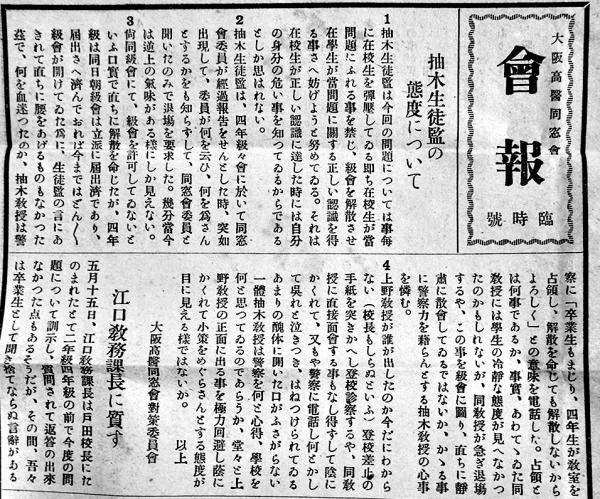 大阪高醫同窓會
會報
臨時號
抽木生徒監の
態度について
1抽木生徒監は今回の問題については事毎
に在校生を彈壓してゐる即ち在校生が當
問題にふれる事を禁じ、級會を解散させ
在學生が當問題に關する正しい認識を得
る事さへ妨げようと努めてゐる。それは
在校生が正しい認識に達した時には自分
の身分の危い事を知つてゐるからである
としか思はれない。
2抽木生徒監は、四年級々會に於いて同窓
會委員が經過報告をせんとした時、突如
出現して、委員が何を云ひ、何を爲さん
とするかをも知らずして、同窓會委員と
聞いたのみで退場を要求した。幾分當今
は逆上の氣味がある樣にしか見えない。
3尙同級會にて、級會を許可してゐないと
いふ口實で直ちに解散を命じたが、四年
級は同日朝級會は立派に屆出濟であり、
屆出さへ濟んでおれば今まではどん〳〵
級會が開けてゐた爲に、生徒監の言にあ
きれて直ちに腰をあげるものもなかつた
玆で、何を血迷つたのか、抽木敎授は警
察に「卒業生もまじり、四年生が敎室を
占領し、解散を命じても解散しないから
よろしく」との意味を電話した。占領と
は何事であるか、事實、あわてゝゐた同
敎授には學生の冷靜な態度が見へなかつ
たのかもしれないが、同敎授が急ぎ退場
するや、この事を級會に圖り、直ちに靜
肅に散會してゐるではないか、かゝる事
に警察力を藉らんとする抽木敎授の心事
を憐む。
4上野敎授が誰が出したのか今だにわから
ない(校長もしらぬといふ)登校差止の
手紙を突きかへし登校診察するや、同敎
授に直接面會する事もなし得ずして陰に
かくれて、又もや警察に電話し何とかし
て吳れと泣きつき、はねつけられてゐる
あまりの醜体に開いた口がふさがらない
一體抽木敎授は警察を何と心得、學校を
何と思つてゐるのであらうか、堂々と上
野敎授の正面に出る事を極力回避し蔭に
かくれて小策をめぐらさんとする態度が
目に見える樣ではないか。　以上
大阪高醫同窓會對策委員會
江口敎務課長に質す
五月十五日、江口敎務課長は戸田校長にた
のまれたとて二年級四年級の前で今度の問
題について訓示し、質問されて返答の出來
なかつた點もあるそうだが、その間、吾々
は卒業生として聞き捨てならぬ言辭がある